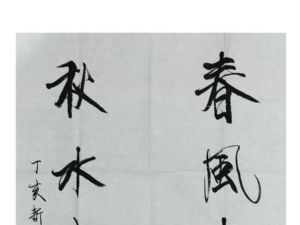 春風
秋水
丁亥新